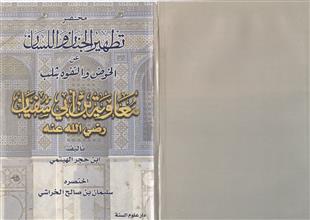 مختصر
تطهير الجنان واللسان
عن
الخوض والتفوه بثلب
معاوية بن أبي سفيان
رضي الله عنه
تأليف
ابن حجر الهيتمي
اختصره
سليمان بن صالح الخراشي
دار علوم السنة